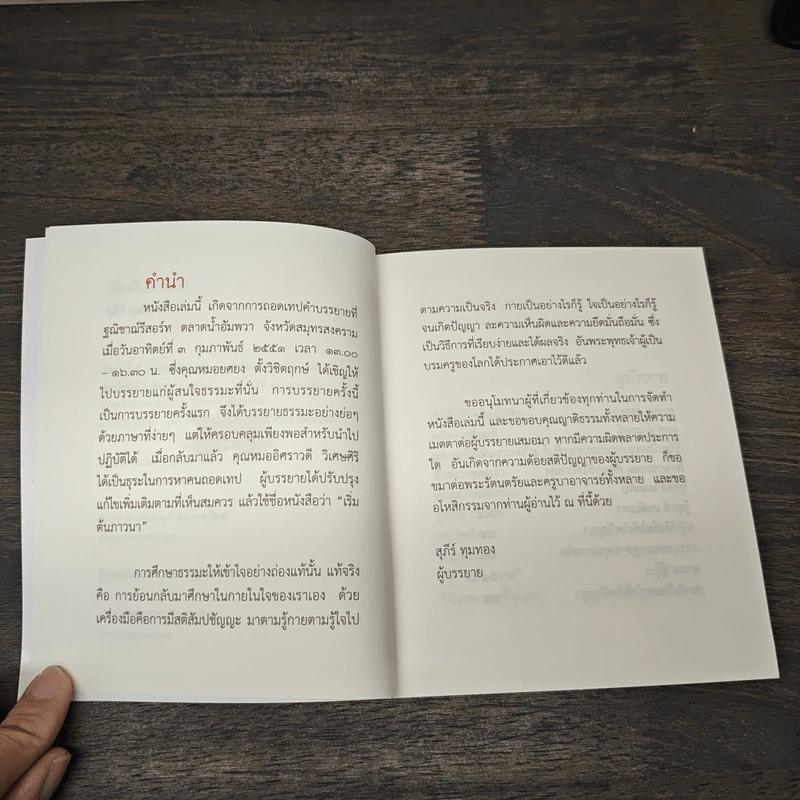 คำนำ
หนังสือเล่มนี้ เกิดจากการถอดเทปคำบรรยายที่
ฐณิชาฌ์รีสอร์ท ตลาดน้ำอัมพวา จังหวัดสมุทรสงคราม
เมื่อวันอาทิตย์ที่ ๓ กุมภาพันธ์ ๒๕๕๑ เวลา ๑๓.๐๐
– ๑๖.๓๐ น. ซึ่งคุณหมอยศยง ตั้งวิชิตฤกษ์ ได้เชิญให้
ไปบรรยายแก่ผู้สนใจธรรมะที่นั่น การบรรยายครั้งนี้
เป็นการบรรยายครั้งแรก จึงได้บรรยายธรรมะอย่างย่อๆ
ด้วยภาษาที่ง่ายๆ แต่ให้ครอบคลุมเพียงพอสำหรับนำไป
ปฏิบัติได้ เมื่อกลับมาแล้ว คุณหมออิศราวดี วิเศษศิริ
ได้เป็นธุระในการหาคนถอดเทป ผู้บรรยายได้ปรับปรุง
แก้ไขเพิ่มเติมตามที่เห็นสมควร แล้วใช้ชื่อหนังสือว่า “เริ่ม
ต้นภาวนา”
การศึกษาธรรมะให้เข้าใจอย่างถ่องแท้นั้น แท้จริง
คือ การย้อนกลับมาศึกษาในกายในใจของเราเอง ด้วย
เครื่องมือคือการมีสติสัมปชัญญะ มาตามรู้กายตามรู้ใจไป
ตามความเป็นจริง กายเป็นอย่างไรก็รู้ ใจเป็นอย่างไรก็รู้
จนเกิดปัญญา ละความเห็นผิดและความยึดมั่นถือมั่น ซึ่ง
เป็นวิธีการที่เรียบง่ายและได้ผลจริง อันพระพุทธเจ้าผู้เป็น
บรมครูของโลกได้ประกาศเอาไว้ดีแล้ว
ขออนุโมทนาผู้ที่เกี่ยวข้องทุกท่านในการจัดทำ
หนังสือเล่มนี้ และขอขอบคุณญาติธรรมทั้งหลายให้ความ
เมตตาต่อผู้บรรยายเสมอมา หากมีความผิดพลาดประการ
ใด อันเกิดจากความด้อยสติปัญญาของผู้บรรยาย ก็ขอ
ขมาต่อพระรัตนตรัยและครูบาอาจารย์ทั้งหลาย และขอ
อโหสิกรรมจากท่านผู้อ่านไว้ ณ ที่นี้ด้วย
สุภีร์ ทุมทอง
ผู้บรรยาย